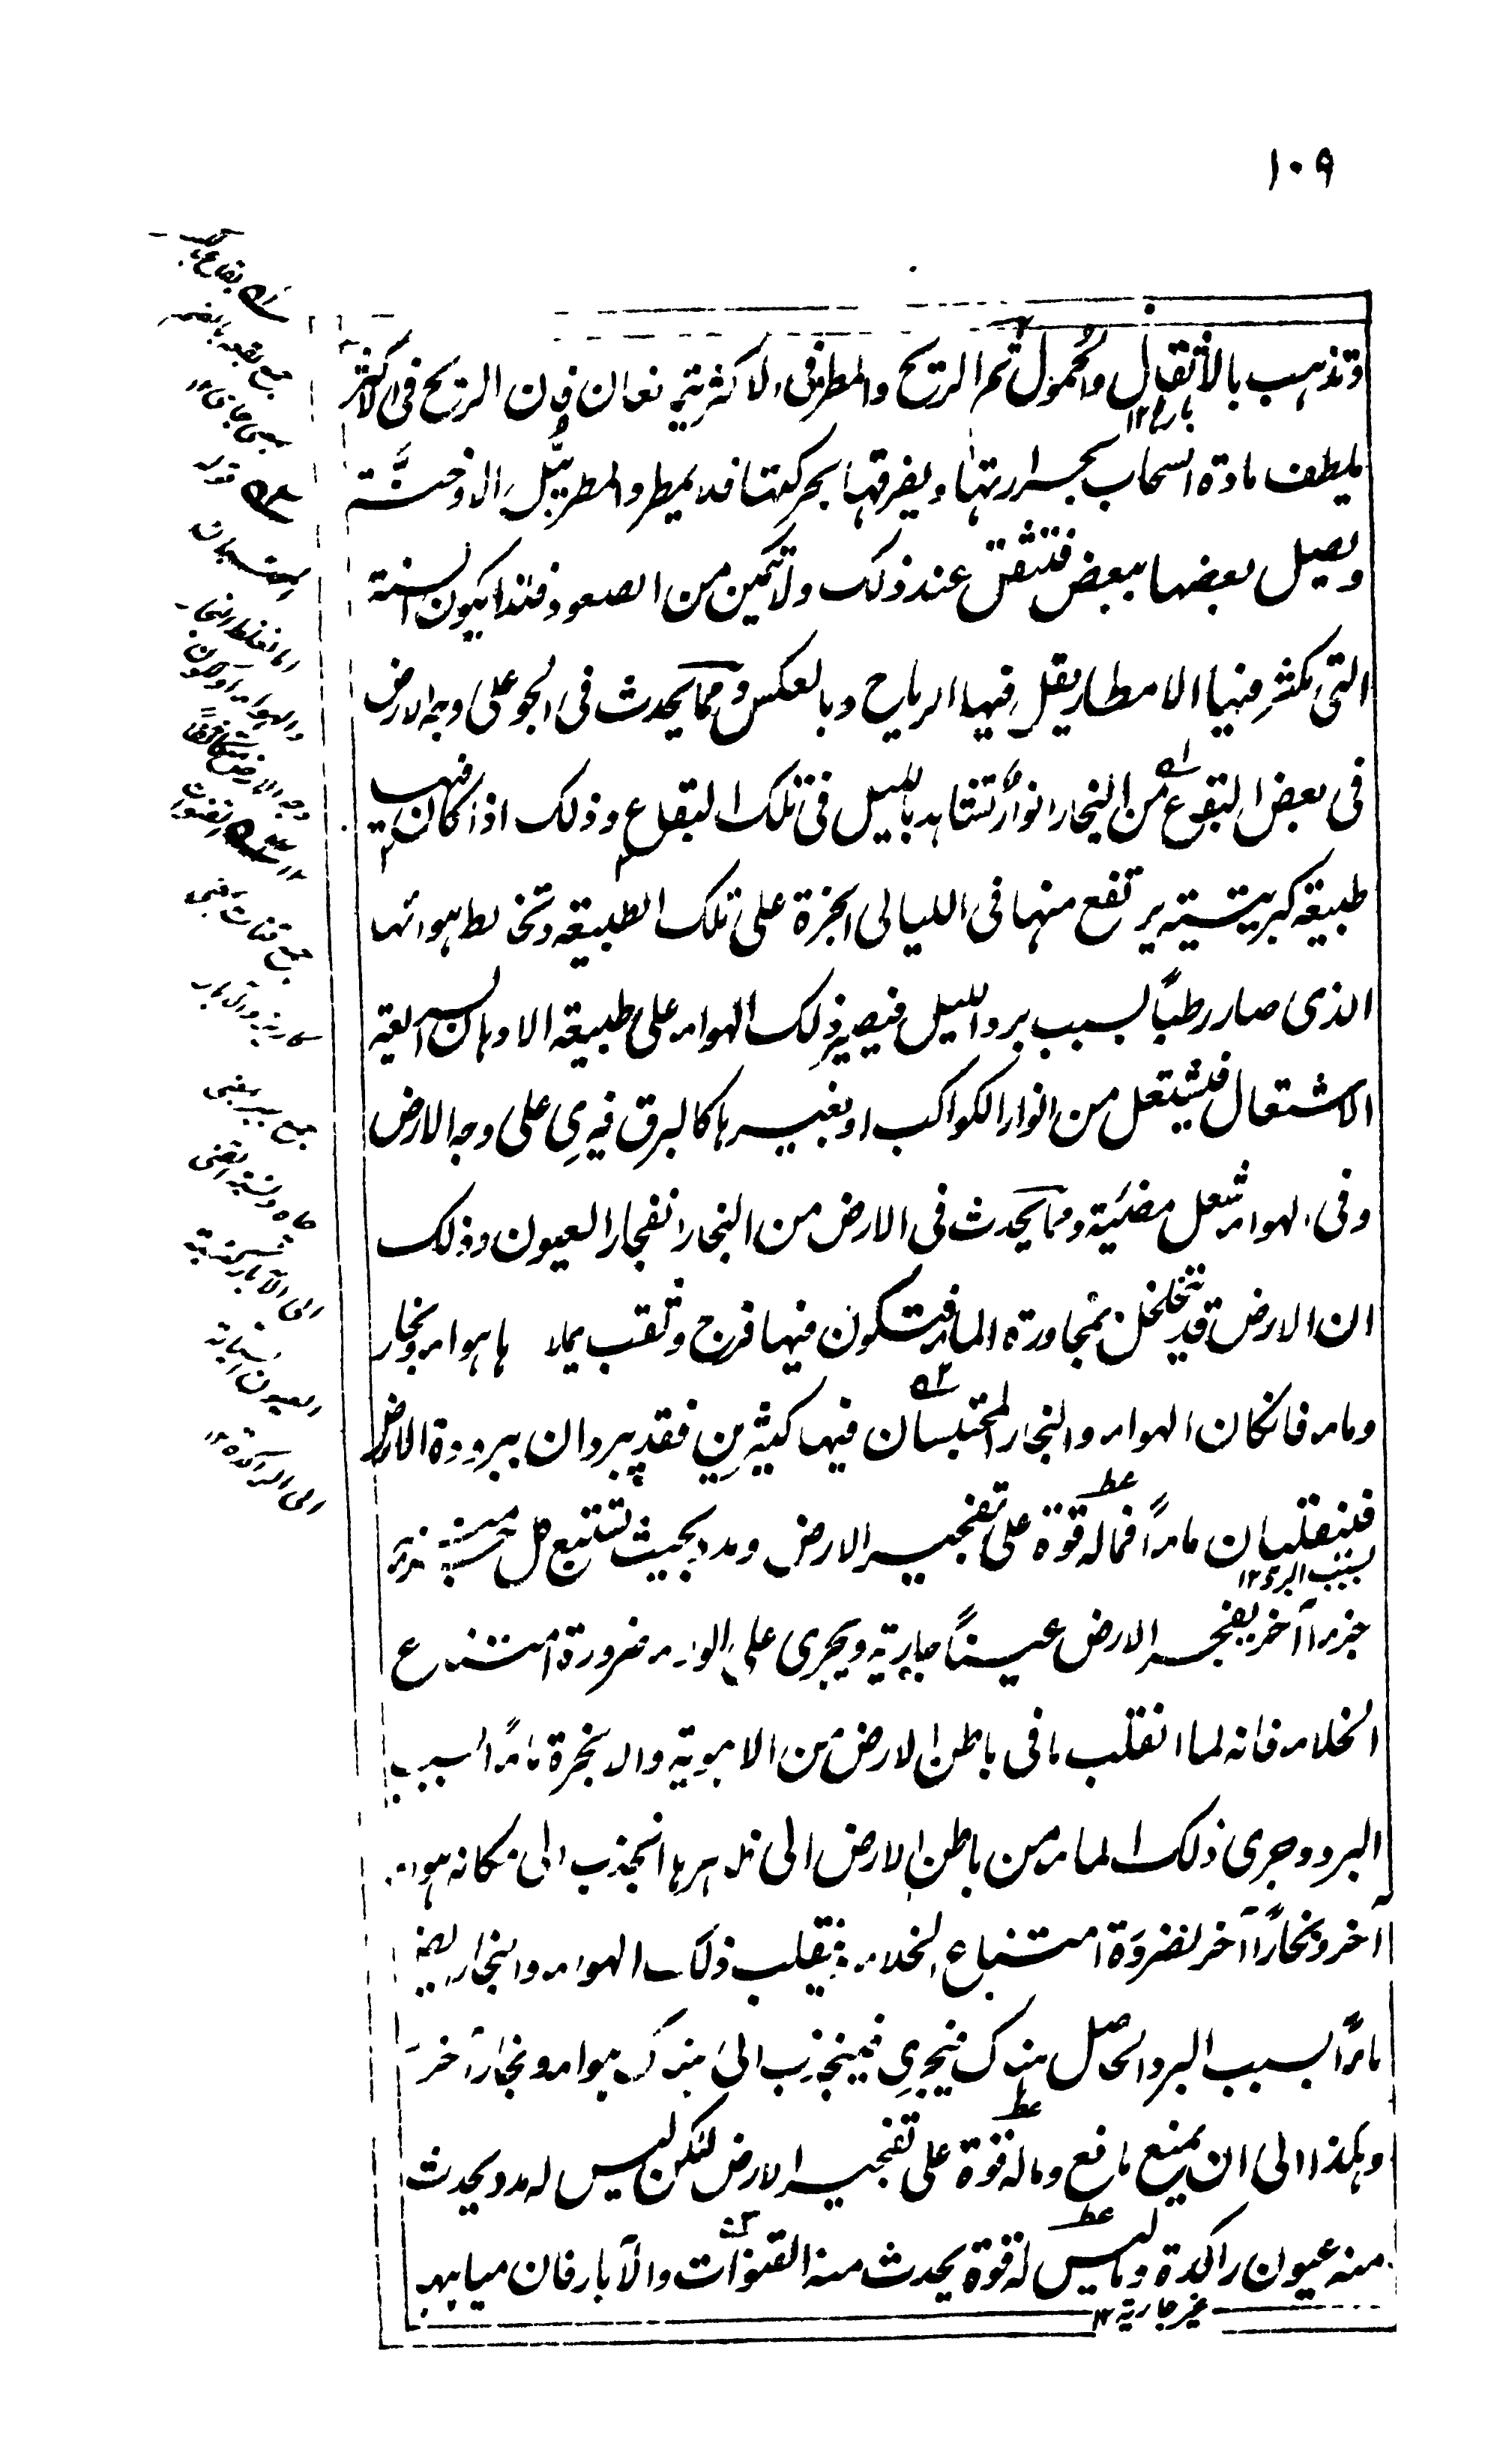 ١٠٩
وتذهب بالأثقال والحمول ثم الريح والمطر فى الاكثر يتمانعان فان الريح فى الاكثر
بارها ١٢
يلطف مادة السحاب بحرارتها ويفرقها بحركتها فلا يمطر والمطر يبل الادخنة
ويصل بعضها ببعض فتثقل عند ذلك ولا تتمكن من الصعود فلذا يكون السنة
التى يكثر فيها الامطار يقل فيها الرياح وبالعكس ومما يحدث فى الجو على وجه الارض
فى بعض البقوع من البخار انوار تشاهد بالليل فى تلك البقاع وذلك اذا كان فيها
طبيعة كبريتية يرتفع منها فى الليالى ابخرة على تلك الطبيعة وتخالط هوائها
الذى صار رطبا بسبب برد الليل فيصير ذلك الهواء على طبيعة الادهان السريعة
الاشتعال فيشتعل من انوار الكواكب او بغيرها كالبرق فيرى على وجه الارض
وفى الهواء شعل مضيئة ومما يحدث فى الارض من البخار انفجار العيون وذلك
ان الارض قد يتخلخل بمجاورة الماء فيتكون فيها فرج وثقب يملاها هواء وبخار
وماء فان كان الهواء والبخار المحتبسان فيها كثيرين فقد يبردان ببرودة الارض
فينقلبان ماءً فما له قوة على تفجير الارض ومدد بحيث تستتبع كل جزء منه
بسبب البرد ١٢
جزءا آخر يفجر الارض عيناً جارية ويجرى على الولاء ضرورة امتناع
الخلاء فانه لما انقلب ما فى باطن الارض من الاهوية والابخرة ماءً بسبب
البرد وجرى ذلك الماء من باطن الارض الى ظاهرها انجذب الى مكانه هواء
آخر وبخاراً آخر لضرورة امتناع الخلاء فينقلب ذلك الهواء والبخار ايضا
ماءً بسبب البرد الحاصل هناك فيجرى فينجذب الى هناك هواء وبخار آخر
وهكذا الى ان يمنع مانع وما له قوة على تفجير الارض لكن ليس له مدد يحدث
منه عيون راكدة وما ليس له قوة يحدث منه القنوات والآبار فان مياهها
غير جارية ١٢
جمع بقعه بالضم
بمعنى جائى ١٢
جمع قنات بمعنى
كاريز
جمع بير بمعنى
چاه
الى الآبار كنسبة
العيون السيالة
الى الراكدة ١٢